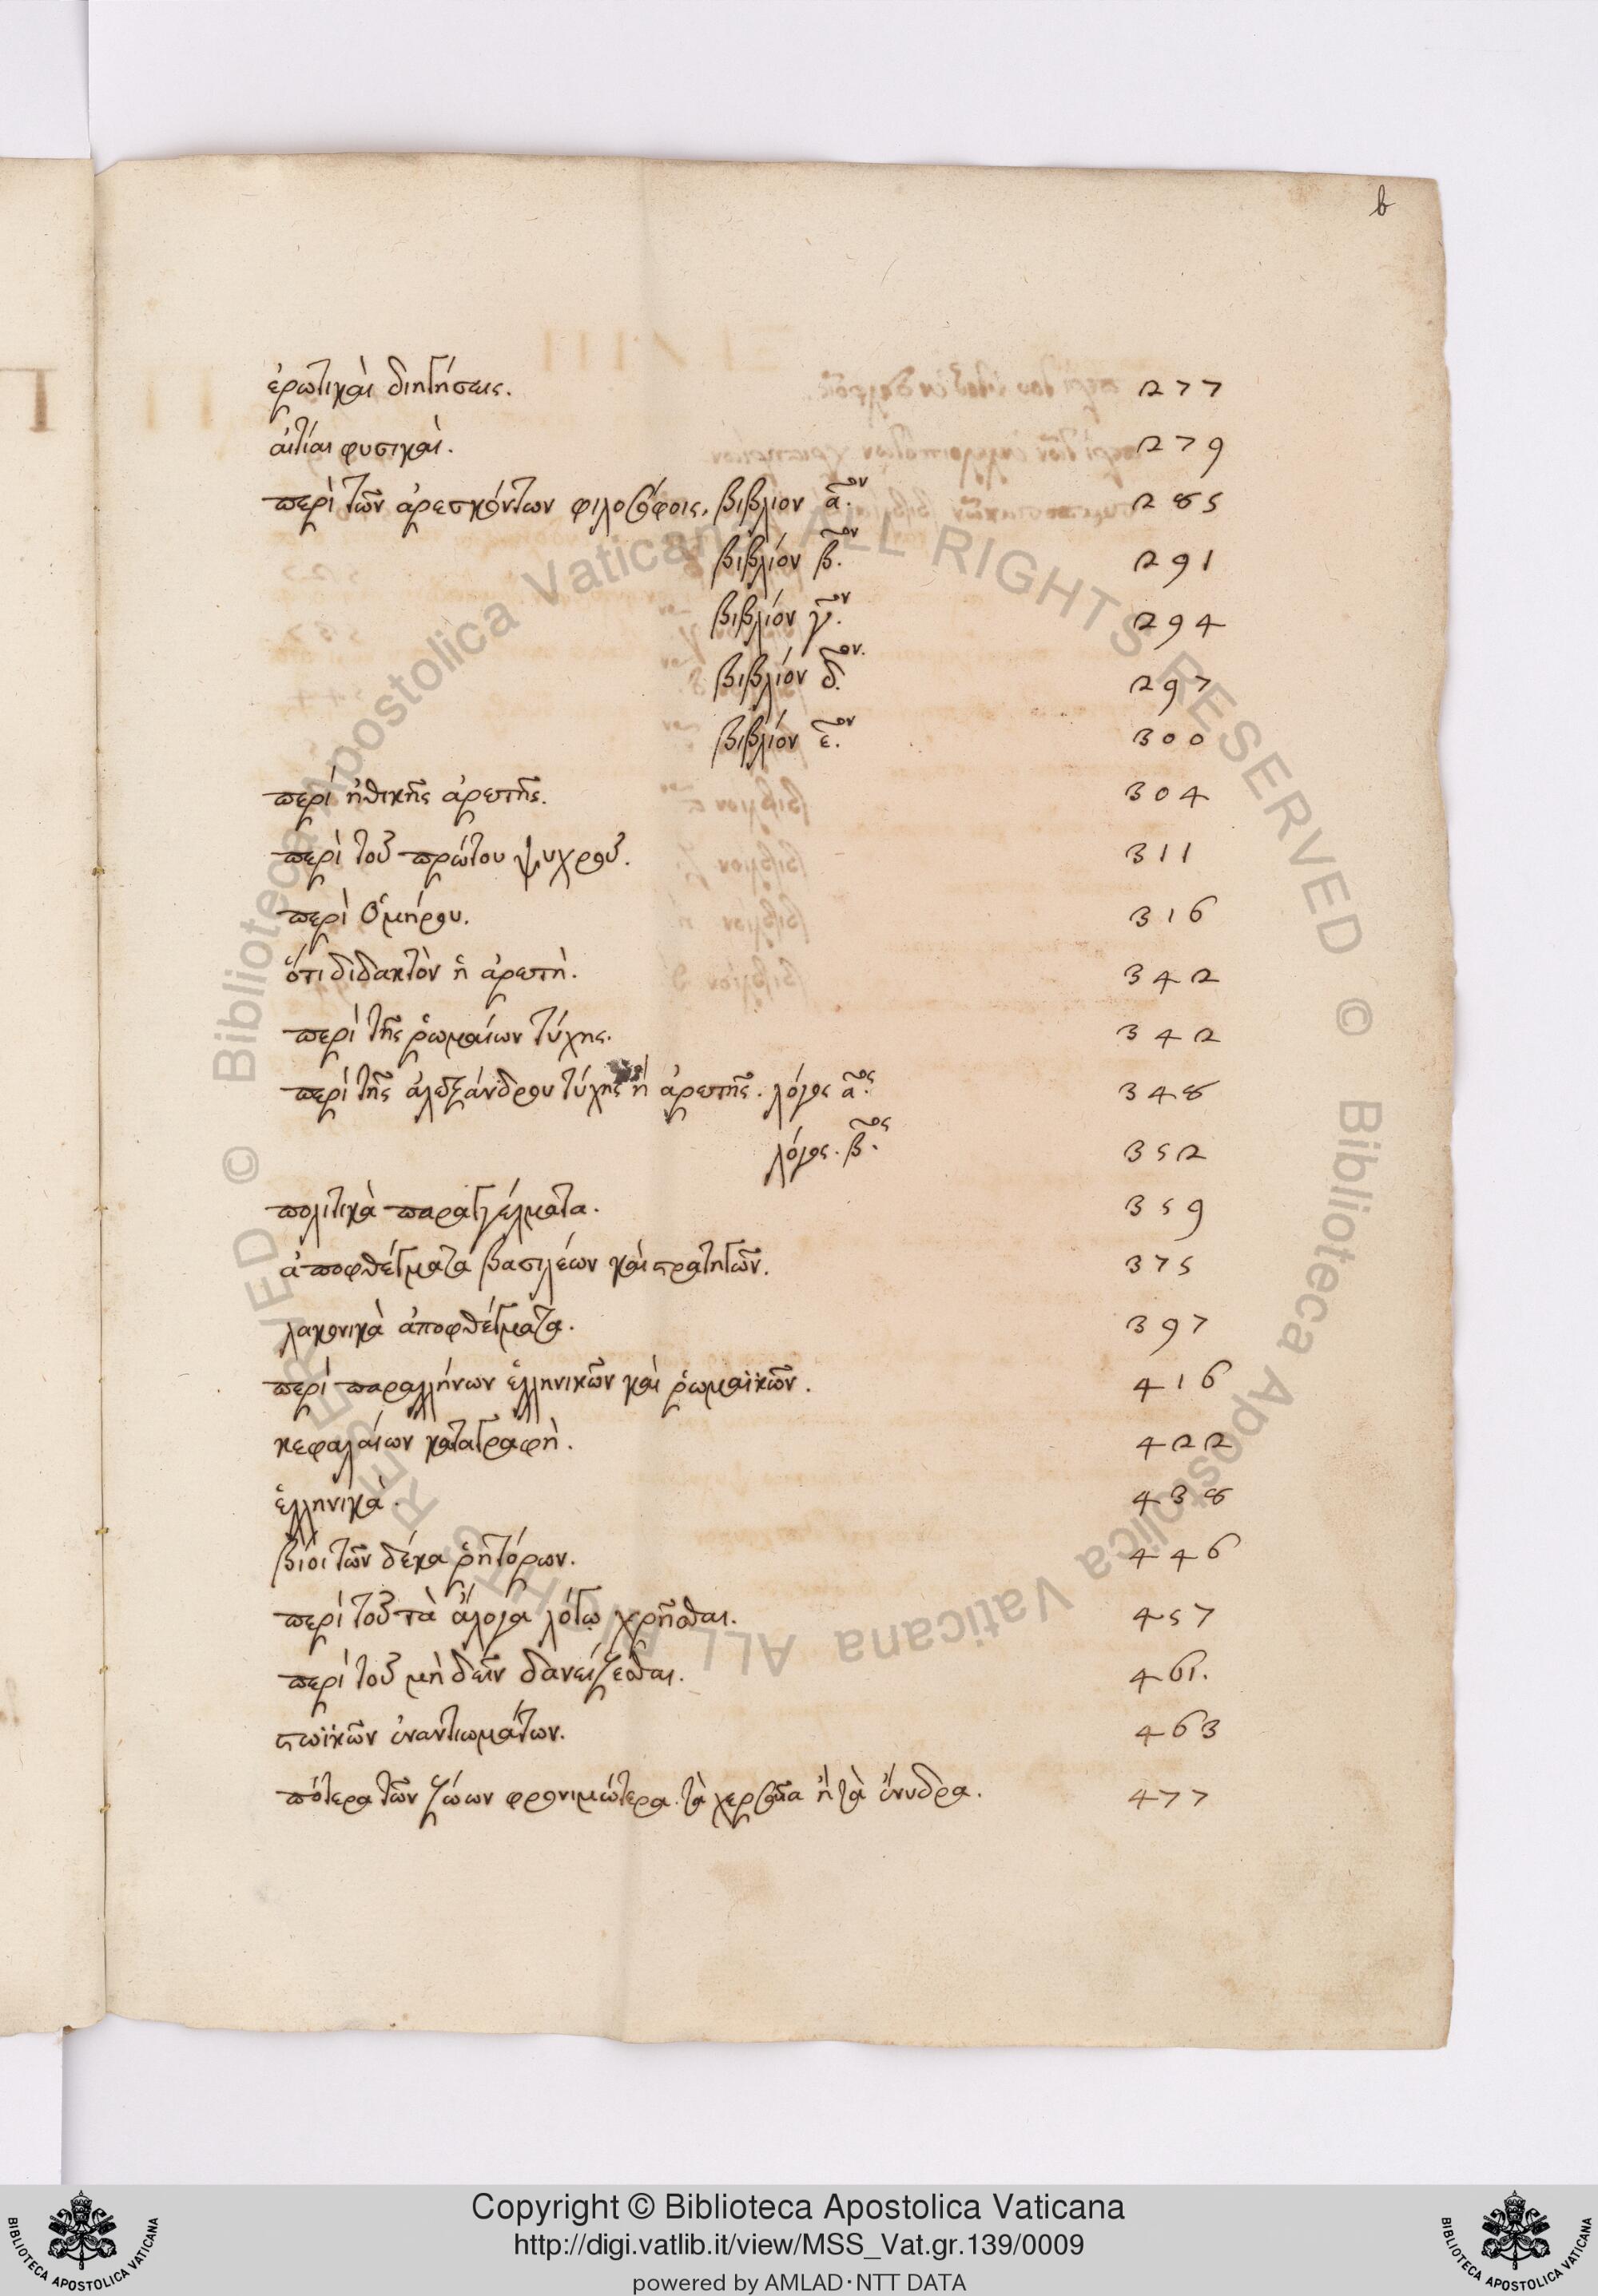 b
ἐρωτικαὶ διηγήσεις. 277
αἰτίαι φυσικαὶ. 279
περὶ τῶν ἀρεσκόντων φιλοσόφοις. βιβλίον α^ον. 285
βιβλίον β^ον. 291
βιβλίον γ^ον. 294
βιβλίον δ^ον. 297
βιβλίον ε^ον. 300
περὶ ἠθικῆς ἀρετῆς. 304
περὶ τοῦ πρώτου ψυχροῦ. 311
περὶ Ὁμήρου. 316
ὅτι διδακτὸν ἡ ἀρετὴ. 342
περὶ τῆς ῥωμαίων τύχης. 342
περὶ τῆς ἀλεξάνδρου τύχης ἢ ἀρετῆς. λόγος α^ος. 348
λόγος. β^ος. 352
πολιτικὰ παραγγέλματα. 359
ἀποφθέγματα βασιλέων καὶ στρατηγῶν. 375
λακονικὰ ἀποφθέγματα. 397
περὶ παραλλήνων ἑλληνικῶν καὶ ῥωμαϊκῶν. 416
κεφαλαίων καταγραφὴ. 422
ἑλληνικὰ. 438
βίοι τῶν δέκα ῥητόρων. 446
περὶ τοῦ τὰ ἄλογα λόγῳ χρῆσθαι. 457
περὶ τοῦ μὴ δεῖν δανείζεσθαι. 461.
στωϊκῶν ἐναντιωμάτων. 463
πότερα τῶν ζώων φρονιμώτερα. τὰ χερσαῖα ἢ τὰ ἔνυδρα. 477
© Biblioteca Apostolica Vaticana ALL RIGHTS RESERVED © Biblioteca Apostolica Vaticana ALL RIGHTS RESERVED
Copyright © Biblioteca Apostolica Vaticana
http://digi.vatlib.it/view/MSS_Vat.gr.139/0009
powered by AMLAD·NTT DATA
BIBLIOTECA APOSTOLICA VATICANA
BIBLIOTECA APOSTOLICA VATICANA